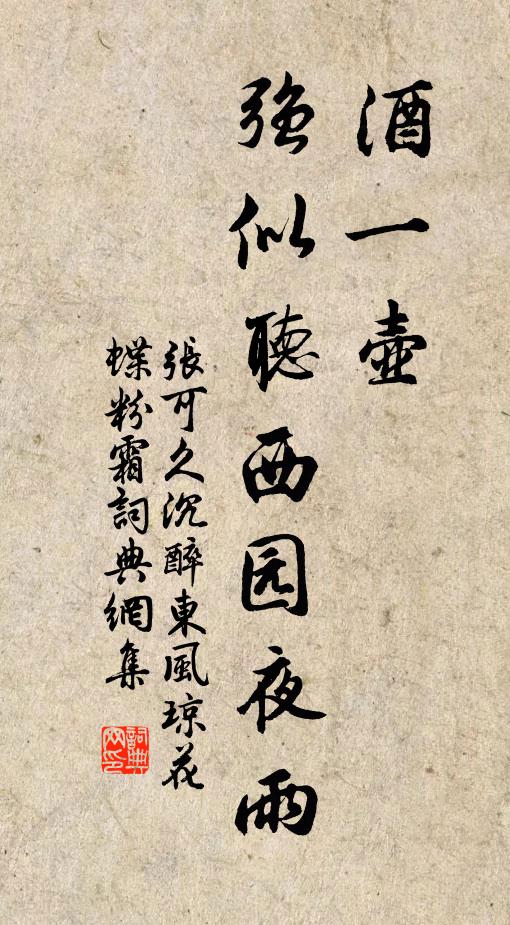 酒一壶
強似聽西园夜雨
張可久沉醉東風琼花
蝶粉霜詞典網集
詞典网印